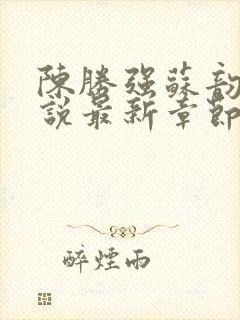 陳勝强蘇韵
説最新章節
醉煙雨